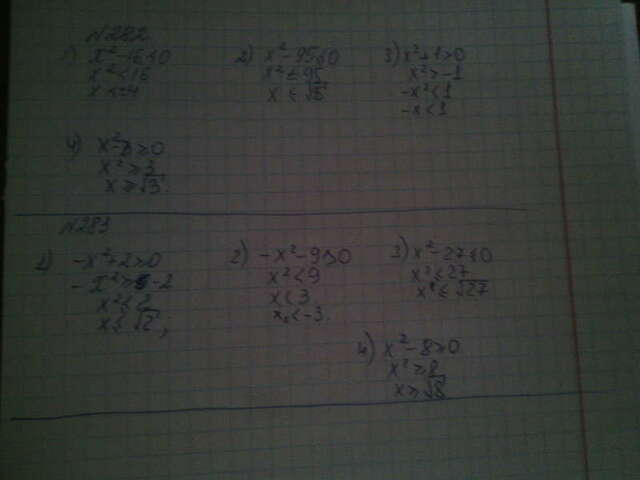 №282
1) x² - 16 < 0
x² < 16
x <
2) x² - 95 ≤ 0
x² ≤ 95
x ≤
3) x² + 1 > 0
x² > -1
-x² < 1
-x < 1
4) x² - 3 ≥ 0
x² ≥ 3
x ≥ √3.
№283
1) -x² + 2 > 0
-x² > -2
x² < 2
x < √2;
2) -x² - 9 > 0
x² < 9
x < 3
x₂ < -3.
3) x² - 27 ≤ 0
x² ≤ 27
x² ≤ √27
4) x² - 8 ≥ 0
x² ≥ 8
x ≥ √8